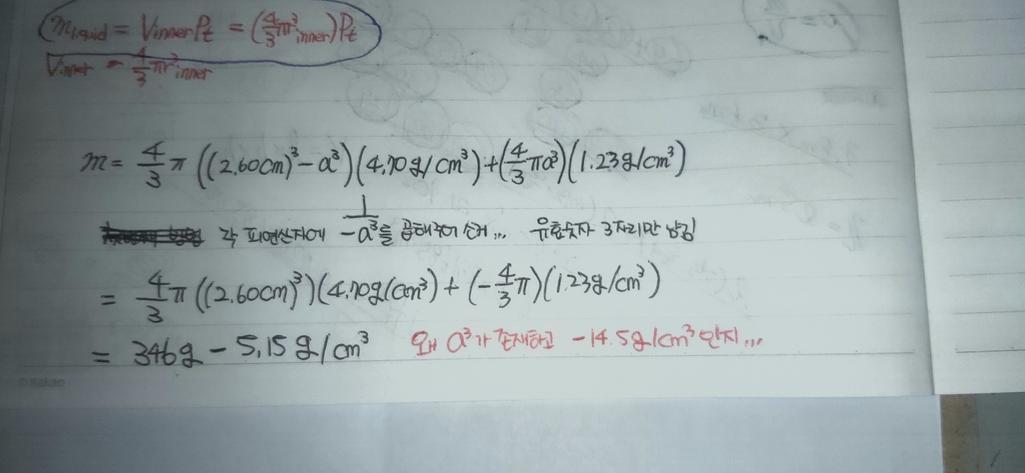 m_liquid = V_innerρ_t = (4/3 πr³_inner)ρ_t
V_inner = 4/3 πr³_inner
m = 4/3 π ((2.60cm)³ - a³)(4.70g/cm³) + (4/3 πa³)(1.23g/cm³)
각 피연산자에 1/-a³을 곱해주어 소거... 유효숫자 3자리만 남김
= 4/3 π ((2.60cm)³)(4.70g/cm³) + (-4/3 π)(1.23g/cm³)
= 346g - 5.15g/cm³ 왜 a³가 존재하고 -14.5g/cm³인지...
© Kakao